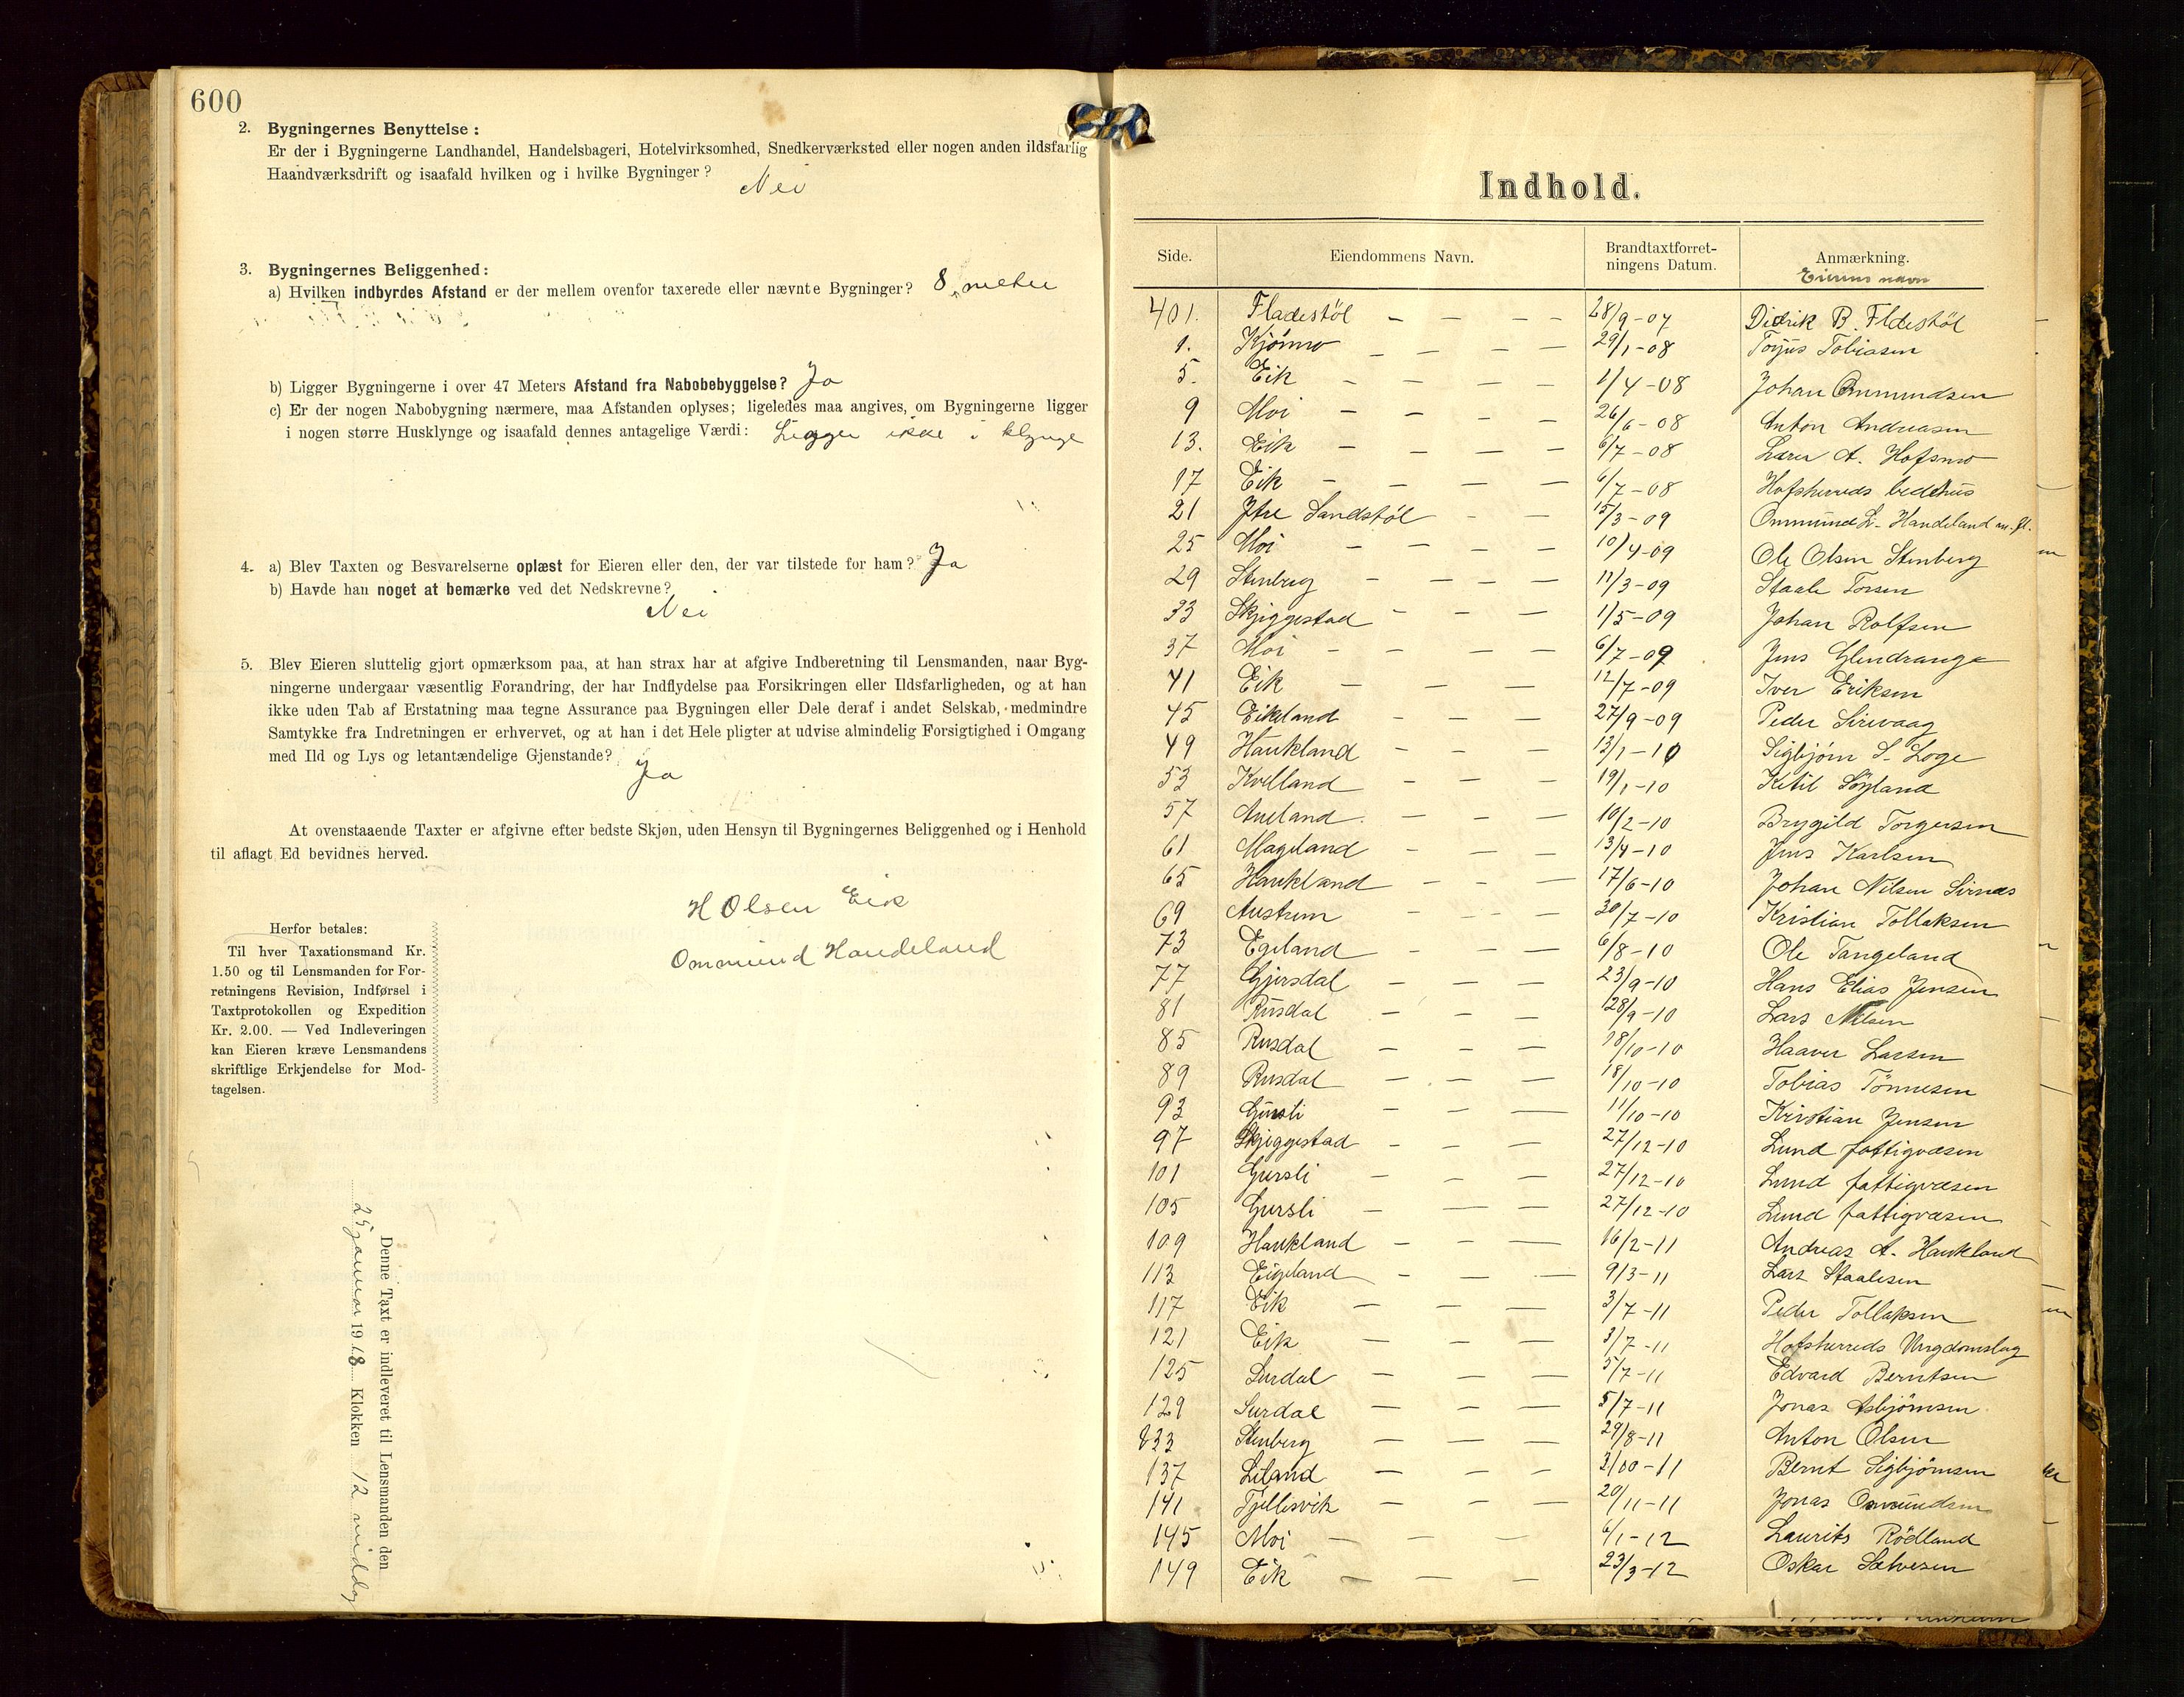 600
2. Bygningernes Benyttelse :
Er der i Bygningerne Landhandel, Handelsbageri, Hotelvirksomhed, Snedkerværksted eller nogen anden ildsfarlig
Haandværksdrift og isaafald hvilken og i hvilke Bygninger ? Nei
3. Bygningernes Beliggenhed :
a) Hvilken indbyrdes Afstand er der mellem ovenfor taxerede eller nævnte Bygninger ? 8 meter
b) Ligger Bygningerne i over 47 Meters Afstand fra Nabobebyggelse ? Ja
c) Er der nogen Nabobygning nærmere, maa Afstanden oplyses; ligeledes maa angives, om Bygningerne ligger
i nogen større Husklynge og isaafald dennes antagelige Værdi : Ligger ikke i klynge
4. a) Blev Taxten og Besvarelserne oplæst for Eieren eller den, der var tilstede for ham ? Ja
b) Havde han noget at bemærke ved det Nedskrevne ?
Nei
5. Blev Eieren sluttelig gjort opmærksom paa, at han strax har at afgive Indberetning til Lensmanden, naar Byg-
ningerne undergaar væsentlig Forandring, der har Indflydelse paa Forsikringen eller Ildsfarligheden, og at han
ikke uden Tab af Erstatning maa tegne Assurance paa Bygningen eller Dele deraf i andet Selskab, medmindre
Samtykke fra Indretningen er erhvervet, og at han i det Hele pligter at udvise almindelig Forsigtighed i Omgang
med Ild og Lys og letantændelige Gjenstande ? Ja
At ovenstaaende Taxter er afgivne efter bedste Skjøn, uden Hensyn til Bygningernes Beliggenhed og i Henhold
til aflagt Ed bevidnes herved.
H Olsen Eik
Ommund Handeland
Herfor betales:
Til hver Taxationsmand Kr.
1.50 og til Lensmanden for For-
retningens Revision, Indførsel i
Taxtprotokollen og Expedition
Kr. 2.00. — Ved Indleveringen
kan Eieren kræve Lensmandens
skriftlige Erkjendelse for Mod-
tagelsen.
Denne Taxt er indleveret til Lensmanden den
25 januar 1918 Klokken 12 middag
Indhold.
Side. Eiendommens Navn. Brandtaxtforret-
ningens Datum. Anmærkning.
Eierens navn
401. Fladestöl — — — — 28/9-07 Didrik B. Fldestöl
1. Kjörmo — — — — 29/1-08 Torjus Tobiasen
5. Eik — — — — 1/4-08 Johan Ommundsen
9 Moi — — — — 26/6-08 Anton Andreasen
13. Eik — — — — 6/7-08 Lærer A. Hofsmo
17 Eik — — — — 6/7-08 Hofsherreds bedehus
21 Ytre Sandstöl — — 15/3-09 Ommund L. Handeland m. fl.
25 Moi — — — — 10/4-09 Ole Olsen Stenberg
29 Stenberg — — — — 11/3-09 Staale Torsen
33 Skjiggestad — — — 1/5-09 Johan Rolfsen
37 Moi — — — — 6/7-09 Jens Glendrange
41 Eik — — — 12/7-09 Iver Eriksen
45 Eikeland — — — 27/9-09 Peder Sirevaag
49 Haukland — — — 13/1-10 Sigbjörn S. Loge
53 Kvelland — — — 19/1-10 Ketil Söyland
57 Aueland — — — 10/2-10 Brygild Torgersen
61 Mageland — — — 13/4-10 Jens Karlsen
65 Haukland — — — 17/6-10 Johan Nilsen Sirnes
69 Austrum — — — 30/7-10 Kristian Tollaksen
73 Egeland — — — 6/8-10 Ole Tangeland
77 Gjersdal — — — 23/9-10 Hans Elias Jensen
81 Rusdal — — — 28/9-10 Lars Nilsen
85 Rusdal — — — 18/10-10 Haaver Larsen
89 Rusdal — — — 18/10-10 Tobias Tönnesen
93 Gursli — — — 11/10-10 Kristian Jensen
97 Skjiggestad — — — 27/12-10 Lund fattigvæsen
101 Gursli — — — 27/12-10 Lund fattigvæsen
105 Gursli — — — 27/12-10 Lund fattigvæsen
109 Haukland — — — 16/2-11 Andreas A. Haukland
113 Eigeland — — — 9/3-11 Lars Staalesen
117 Eik — — — 3/7-11 Peder Tollaksen
121 Eik — — — 3/7-11 Hofsherreds Ungdomslag
125 Surdal — — — 5/7-11 Edvard Berntsen
129 Surdal — — — 5/7-11 Jonas Asbjörnsen
133 Stenberg — — — 29/8-11 Anton Olsen
137 Liland — — — 3/00-11 Bernt Sigbjörnsen
141 Tjellesvik — — — 20/11-11 Jonas Omundsen
145 Moi — — — 6/1-12 Laurits Rödland
149 Eik — — — 23/3-12 Oskar Salvesen